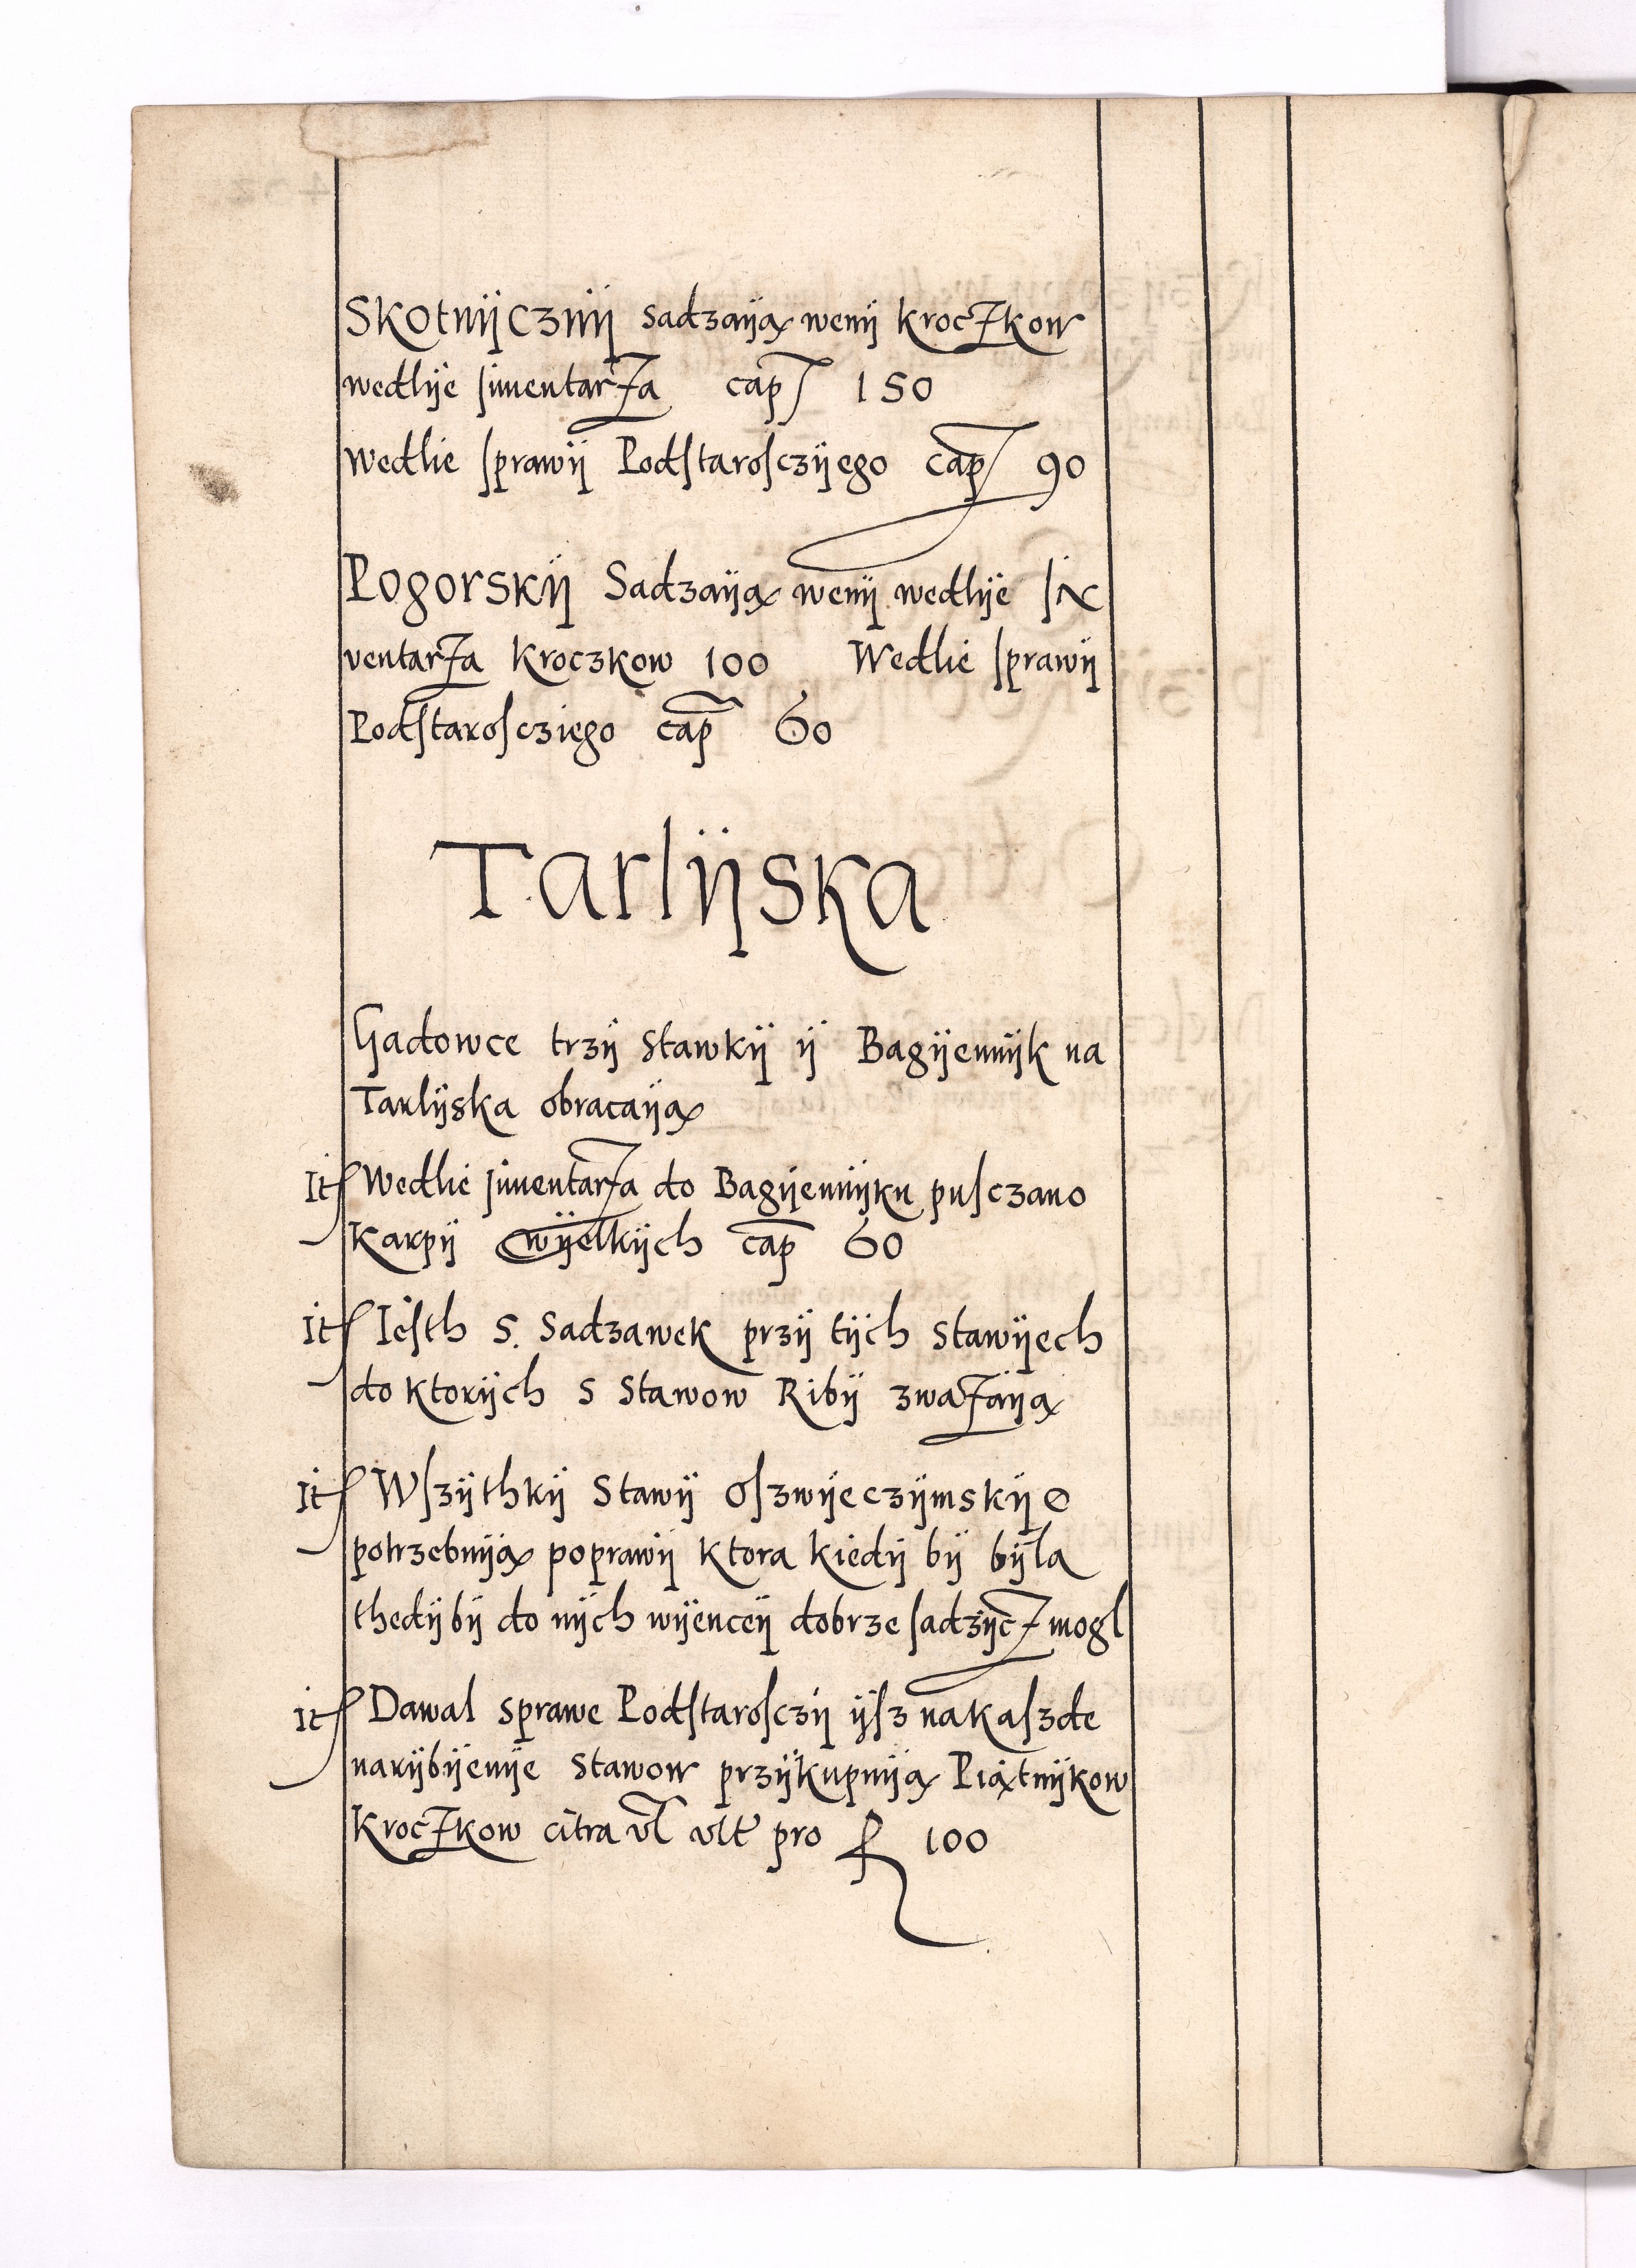 Skotnÿcznÿ sadzaÿą wenÿ kroczkow
wedlÿe ÿnwentarza cap 150
Wedlie sprawÿ Podstarosczÿego cap 90
Pogorskÿ Sadzaÿą wenÿ wedlÿe in
ventarza Kroczkow 100 Wedlie sprawÿ
Podstarosciego cap 60
Tarlÿska
Gadowce trzÿ stawkÿ ÿ Bagÿennÿk na
Tarlÿska obracaÿą
It Wedlie inventarza do Bagÿennÿku pusczano
Karpÿ wÿelkÿch cap 60
It Iesth 5. Sadzawek przÿ tÿch stawÿech
do ktorÿch s Stawow Ribÿ zwazaÿą
It Wszÿthkÿ Stawÿ Oszwÿeczÿmskÿe
potrzebuÿą poprawÿ ktora kiedÿ bÿ bÿla
thedÿbÿ do nÿch wÿenceÿ dobrze sadzÿcz mogl
it Dawal sprawe Podstarosczÿ ÿsz nakaszde
narÿbÿenÿe Stawow przÿkupuÿą Piątnÿkow
Kroczkow citra vl vlt pro f 100